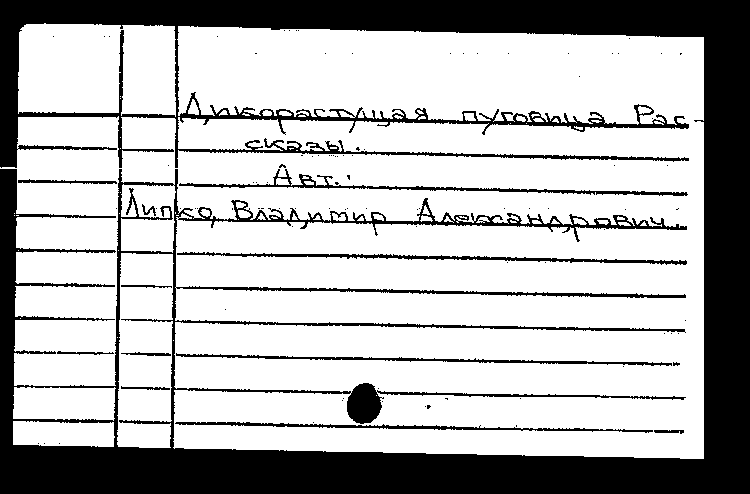 Дикорастущая пуговица. Рас-
сказы.
Авт.:
Липко, Владимир Александрович.